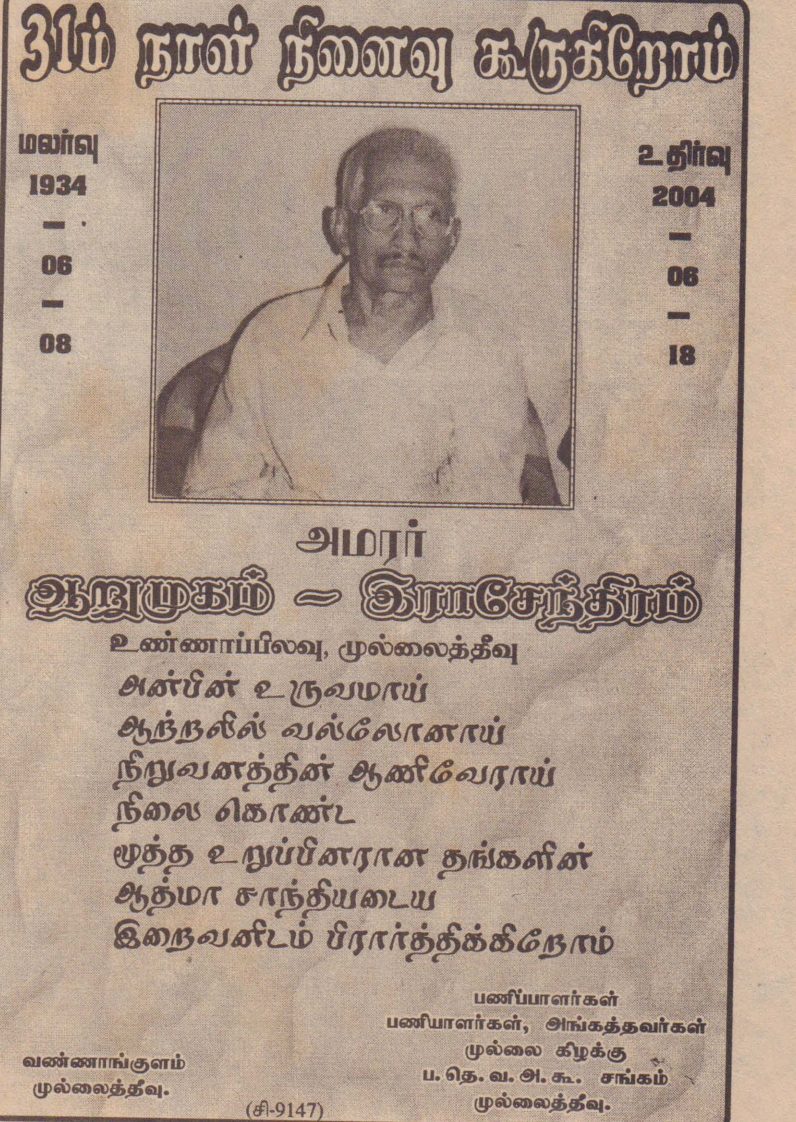 31ம் நாள் நினைவு கூருகிறோம்
மலர்வு
1934
–
06
–
08
உதிர்வு
2004
–
06
–
18
அமரர்
ஆறுமுகம் – இராசேந்திரம்
உண்ணாப்பிலவு, முல்லைத்தீவு
அன்பின் உருவமாய்
ஆற்றலில் வல்லோனாய்
நிறுவனத்தின் ஆணிவேராய்
நிலை கொண்ட
மூத்த உறுப்பினரான தங்களின்
ஆத்மா சாந்தியடைய
இறைவனிடம் பிரார்த்திக்கிறோம்
பணிப்பாளர்கள்
பணியாளர்கள், அங்கத்தவர்கள்
முல்லை கிழக்கு
ப. தெ. வ. அ. கூ. சங்கம்
முல்லைத்தீவு.
வண்ணாங்குளம்
முல்லைத்தீவு.
(சி-9147)